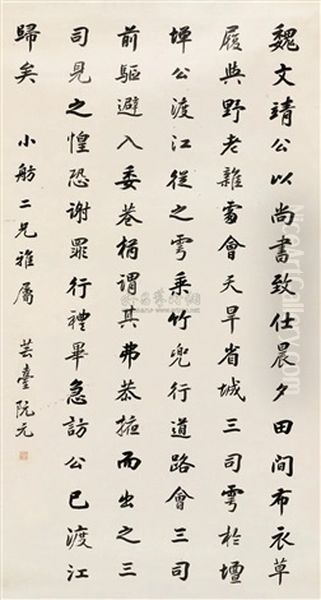 魏文靖公以尚書致仕晨夕田間布衣草
履與野老雜處會天旱省城三司雩於壇
墠公渡江從之雩乘竹兜行道路會三司
前驅避入委巷柄謂其弗恭掖而出之三
司見之惶恐謝罪行禮畢急訪公已渡江
歸矣 小舫二兄雅屬 芸臺阮元
NiceArtGallery.com